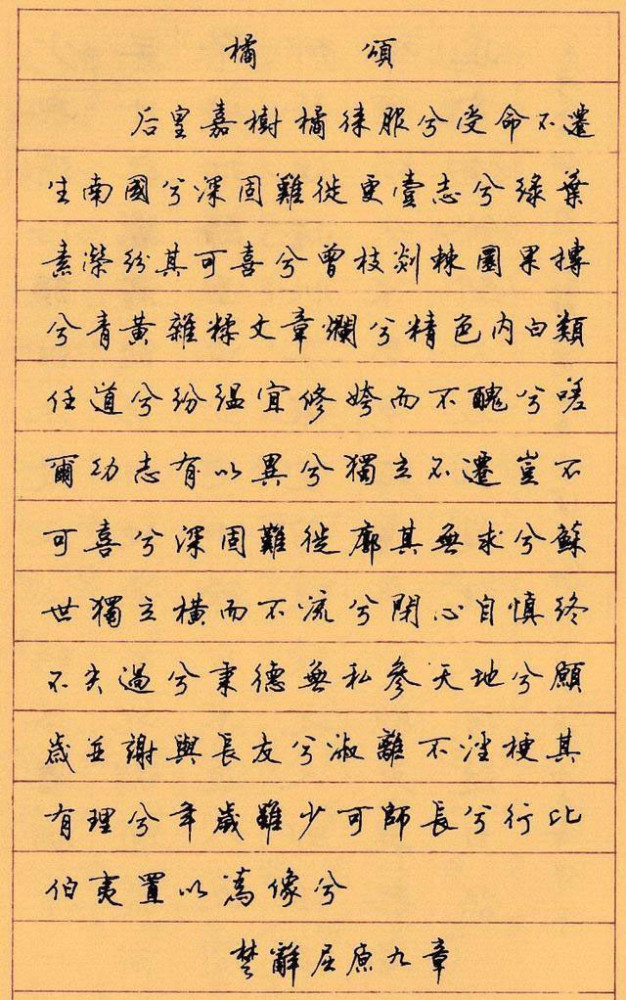 橘頌
后皇嘉樹橘徠服兮受命不遷
生南國兮深固難徙更壹志兮綠葉
素榮紛其可喜兮曾枝剡棘圜果摶
兮青黃雜糅文章爛兮精色內白類
任道兮紛緼宜修姱而不醜兮嗟
爾幼志有以異兮獨立不遷豈不
可喜兮深固難徙廓其無求兮蘇
世獨立橫而不流兮閉心自慎終
不失過兮秉德無私參天地兮願
歲並謝與長友兮淑離不淫梗其
有理兮年歲雖少可師長兮行比
伯夷置以為像兮
楚辭屈原九章